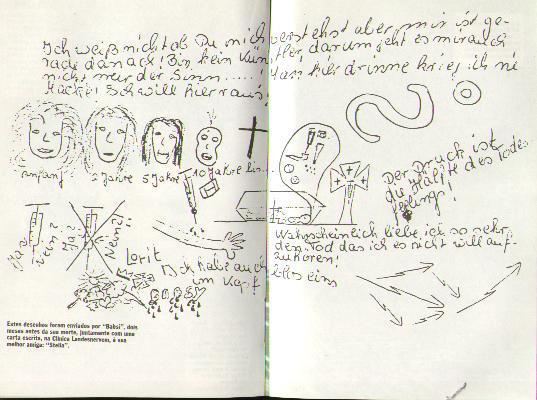 Ich weiß nicht ob Du mich verstehst aber mir ist ge-
rade danach! Bin kein Künstler, darum geht es mir auch
nicht nur der Sinn..... Man hier drinne krieg ich ne
Macke! Ich will hier raus!
Anfang
2 Jahre
5 Jahre
10 Jahre bin...
Der Druck ist
die Hälfte des
feelings!
Ja?
Nein?
Ja?
Nein?!
Lorit
Ich habe auch
im Kopf
BABSY
Wahrscheinlich liebe ich so sehr
den Tod das ich es nicht will auf-
zuhören!
Estes desenhos foram enviados por "Babsi", dois
meses antes da sua morte, juntamente com uma
carta escrita, na Clínica Landesnervem, à sua
melhor amiga: "Stella".